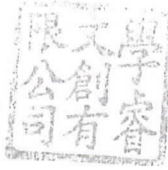 學睿
文創有
限公司